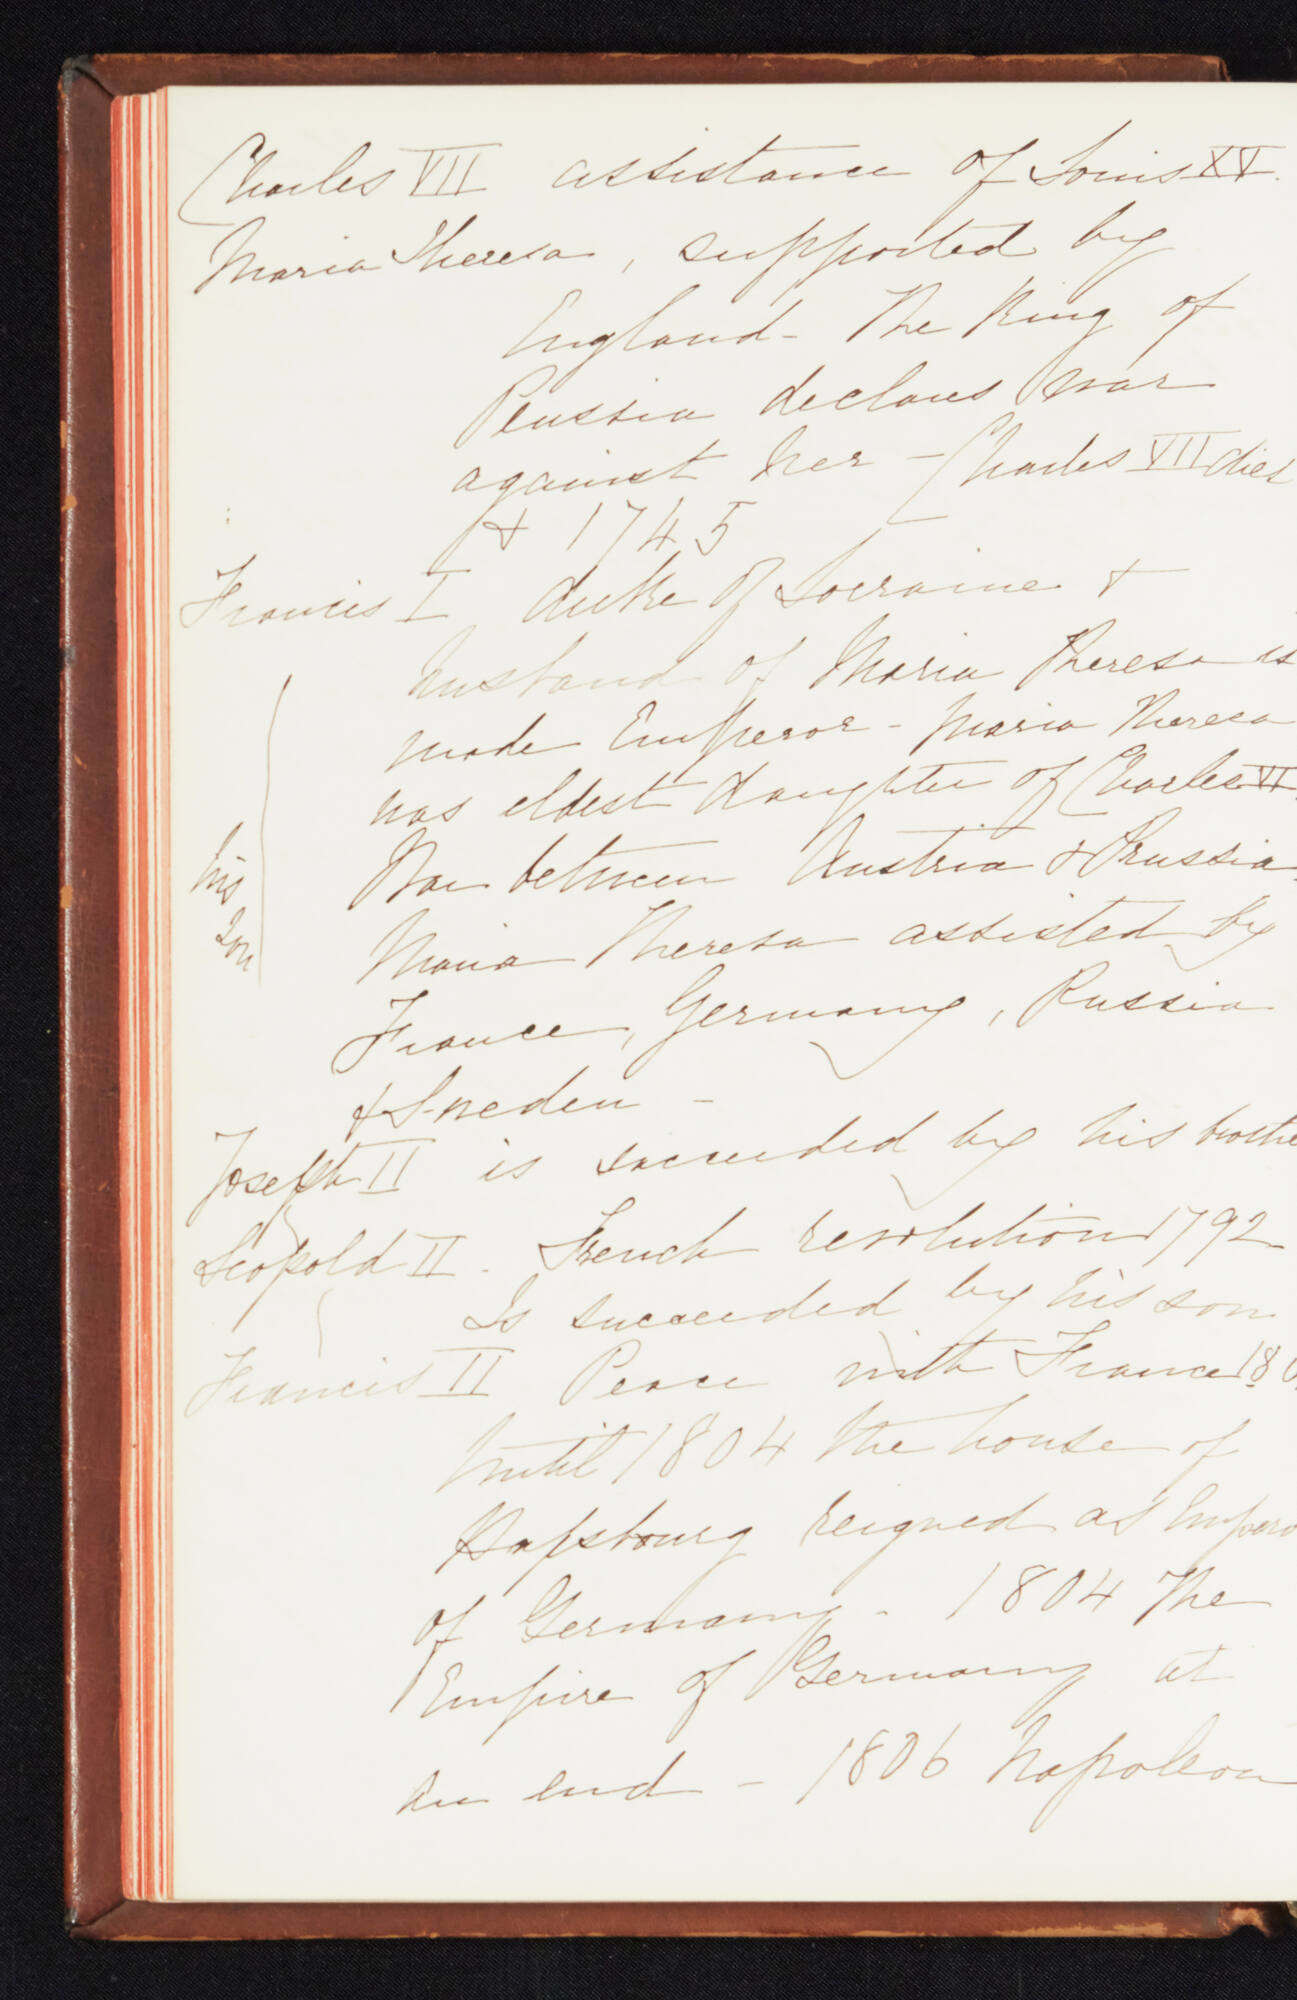 Charles VII assistance of Louis XV.
Maria Theresa, supported by
England - The King of
Prussia declares war
against her - Charles VII dies
& 1745
Francis I duke of Lorraine &
husband of Maria Theresa is
made Emperor - Maria Theresa
was eldest daughter of Charles VI.
War between Austria & Prussia.
Maria Theresa assisted by
France, Germany, Russia
& Sweden -
his
Son
Joseph II is succeeded by his brothe
Leopold II. French revolution 1792
Is succeeded by his son
Francis II Peace with France 180
Until 1804 the house of
Hapsbourg reigned as Empero
of Germany - 1804 The
Empire of Germany at
an end - 1806 Napoleon